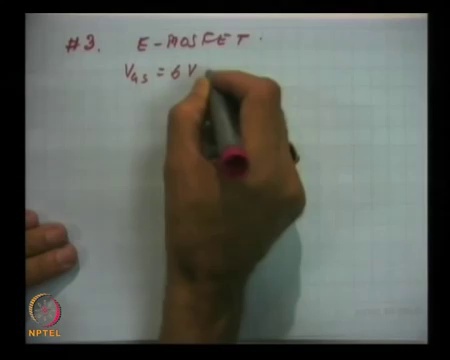 #3. E-MOSFET.
V_GS = 6 V
NPTEL